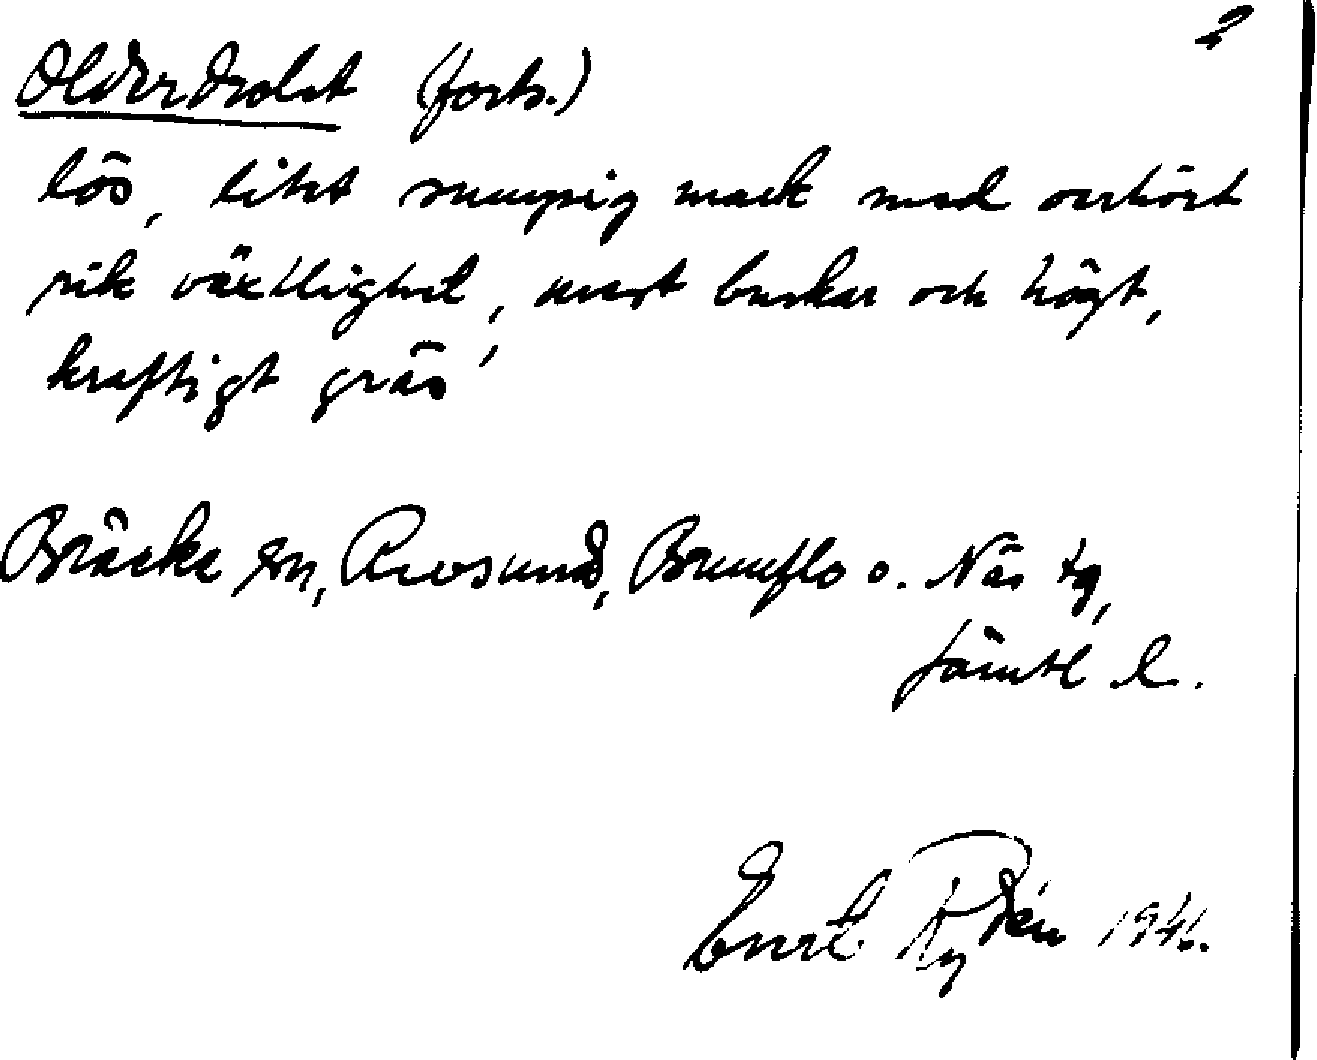 2
Olderdrolet (forts.)
lös, likt sumpig mark med oerhört
rik växtlighet, mest buskar och högt,
kraftigt gräs
Bräcke sn, Revsund, Brunflo o. Näs tg,
Jämtl l.
Rydén 1946.